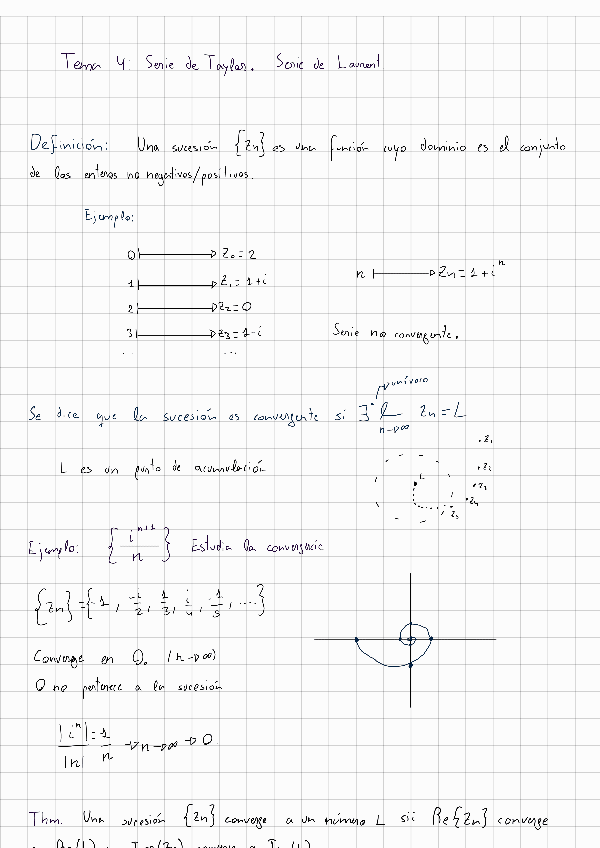 Tema 4: Serie de Taylor. Serie de Laurent
Definición: Una sucesión {Zn} es una función cuyo dominio es el conjunto
de los enteros no negativos/positivos.
Ejemplo:
0 → Z₀ = 2
1 → Z₁ = 1+i
2 → Z₂ = 0
3 → Z₃ = 1-i
... ...
n → Zn = 1 + iⁿ
Serie no convergente.
unívoco
Se dice que la sucesión es convergente si ∃ l Zn = L
n→∞
L es un punto de acumulación
L
Z₁
Z₂
Z₃
Z₄
Z₅
Ejemplo: {iⁿ⁺¹/n} Estudia la convergencia
{Zn} = {-1, -i/2, 1/3, i/4, -1/5, ....}
Converge en 0. (n→∞)
0 no pertenece a la sucesión
|iⁿ|/|n| = 1/n → n→∞ → 0
Thm. Una sucesión {Zn} converge a un número L sii Re{Zn} converge